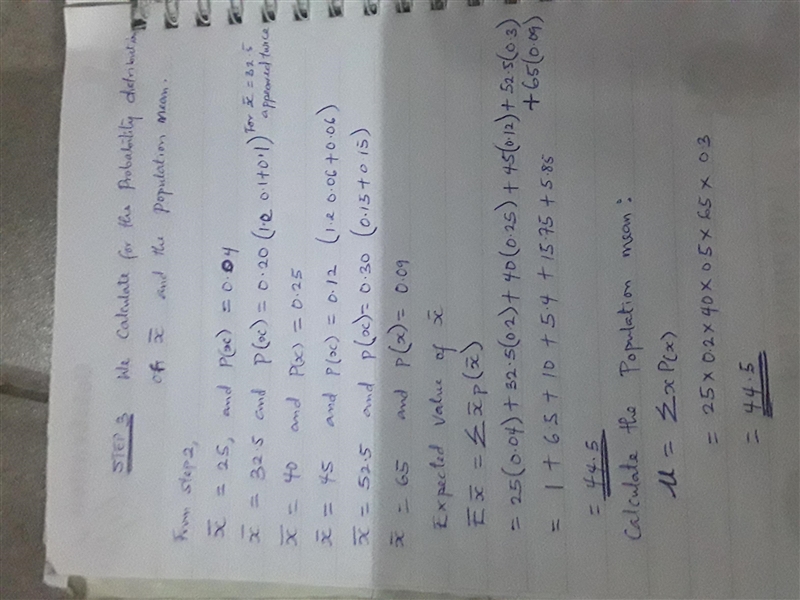 STEP 3 We Calculate for the Probability distribution
of x̄ and the Population mean.
From step 2,
x̄ = 25, and P(x) = 0.04
x̄ = 32.5 and P(x) = 0.20 (i.e 0.1+0.1) For x̄ = 32.5
appeared twice
x̄ = 40 and P(x) = 0.25
x̄ = 45 and P(x) = 0.12 (i.e 0.06+0.06)
x̄ = 52.5 and P(x) = 0.30 (0.15+0.15)
x̄ = 65 and P(x) = 0.09
Expected value of x̄
Ex̄ = Σx̄p(x̄)
= 25(0.04)+32.5(0.2)+40(0.25)+45(0.12)+52.5(0.3)
+65(0.09)
= 1 + 6.5 + 10 + 5.4 + 15.75 + 5.85
= 44.5
Calculate the Population mean:
μ = Σx P(x)
= 25×0.2×40×0.5×65×0.3
= 44.5